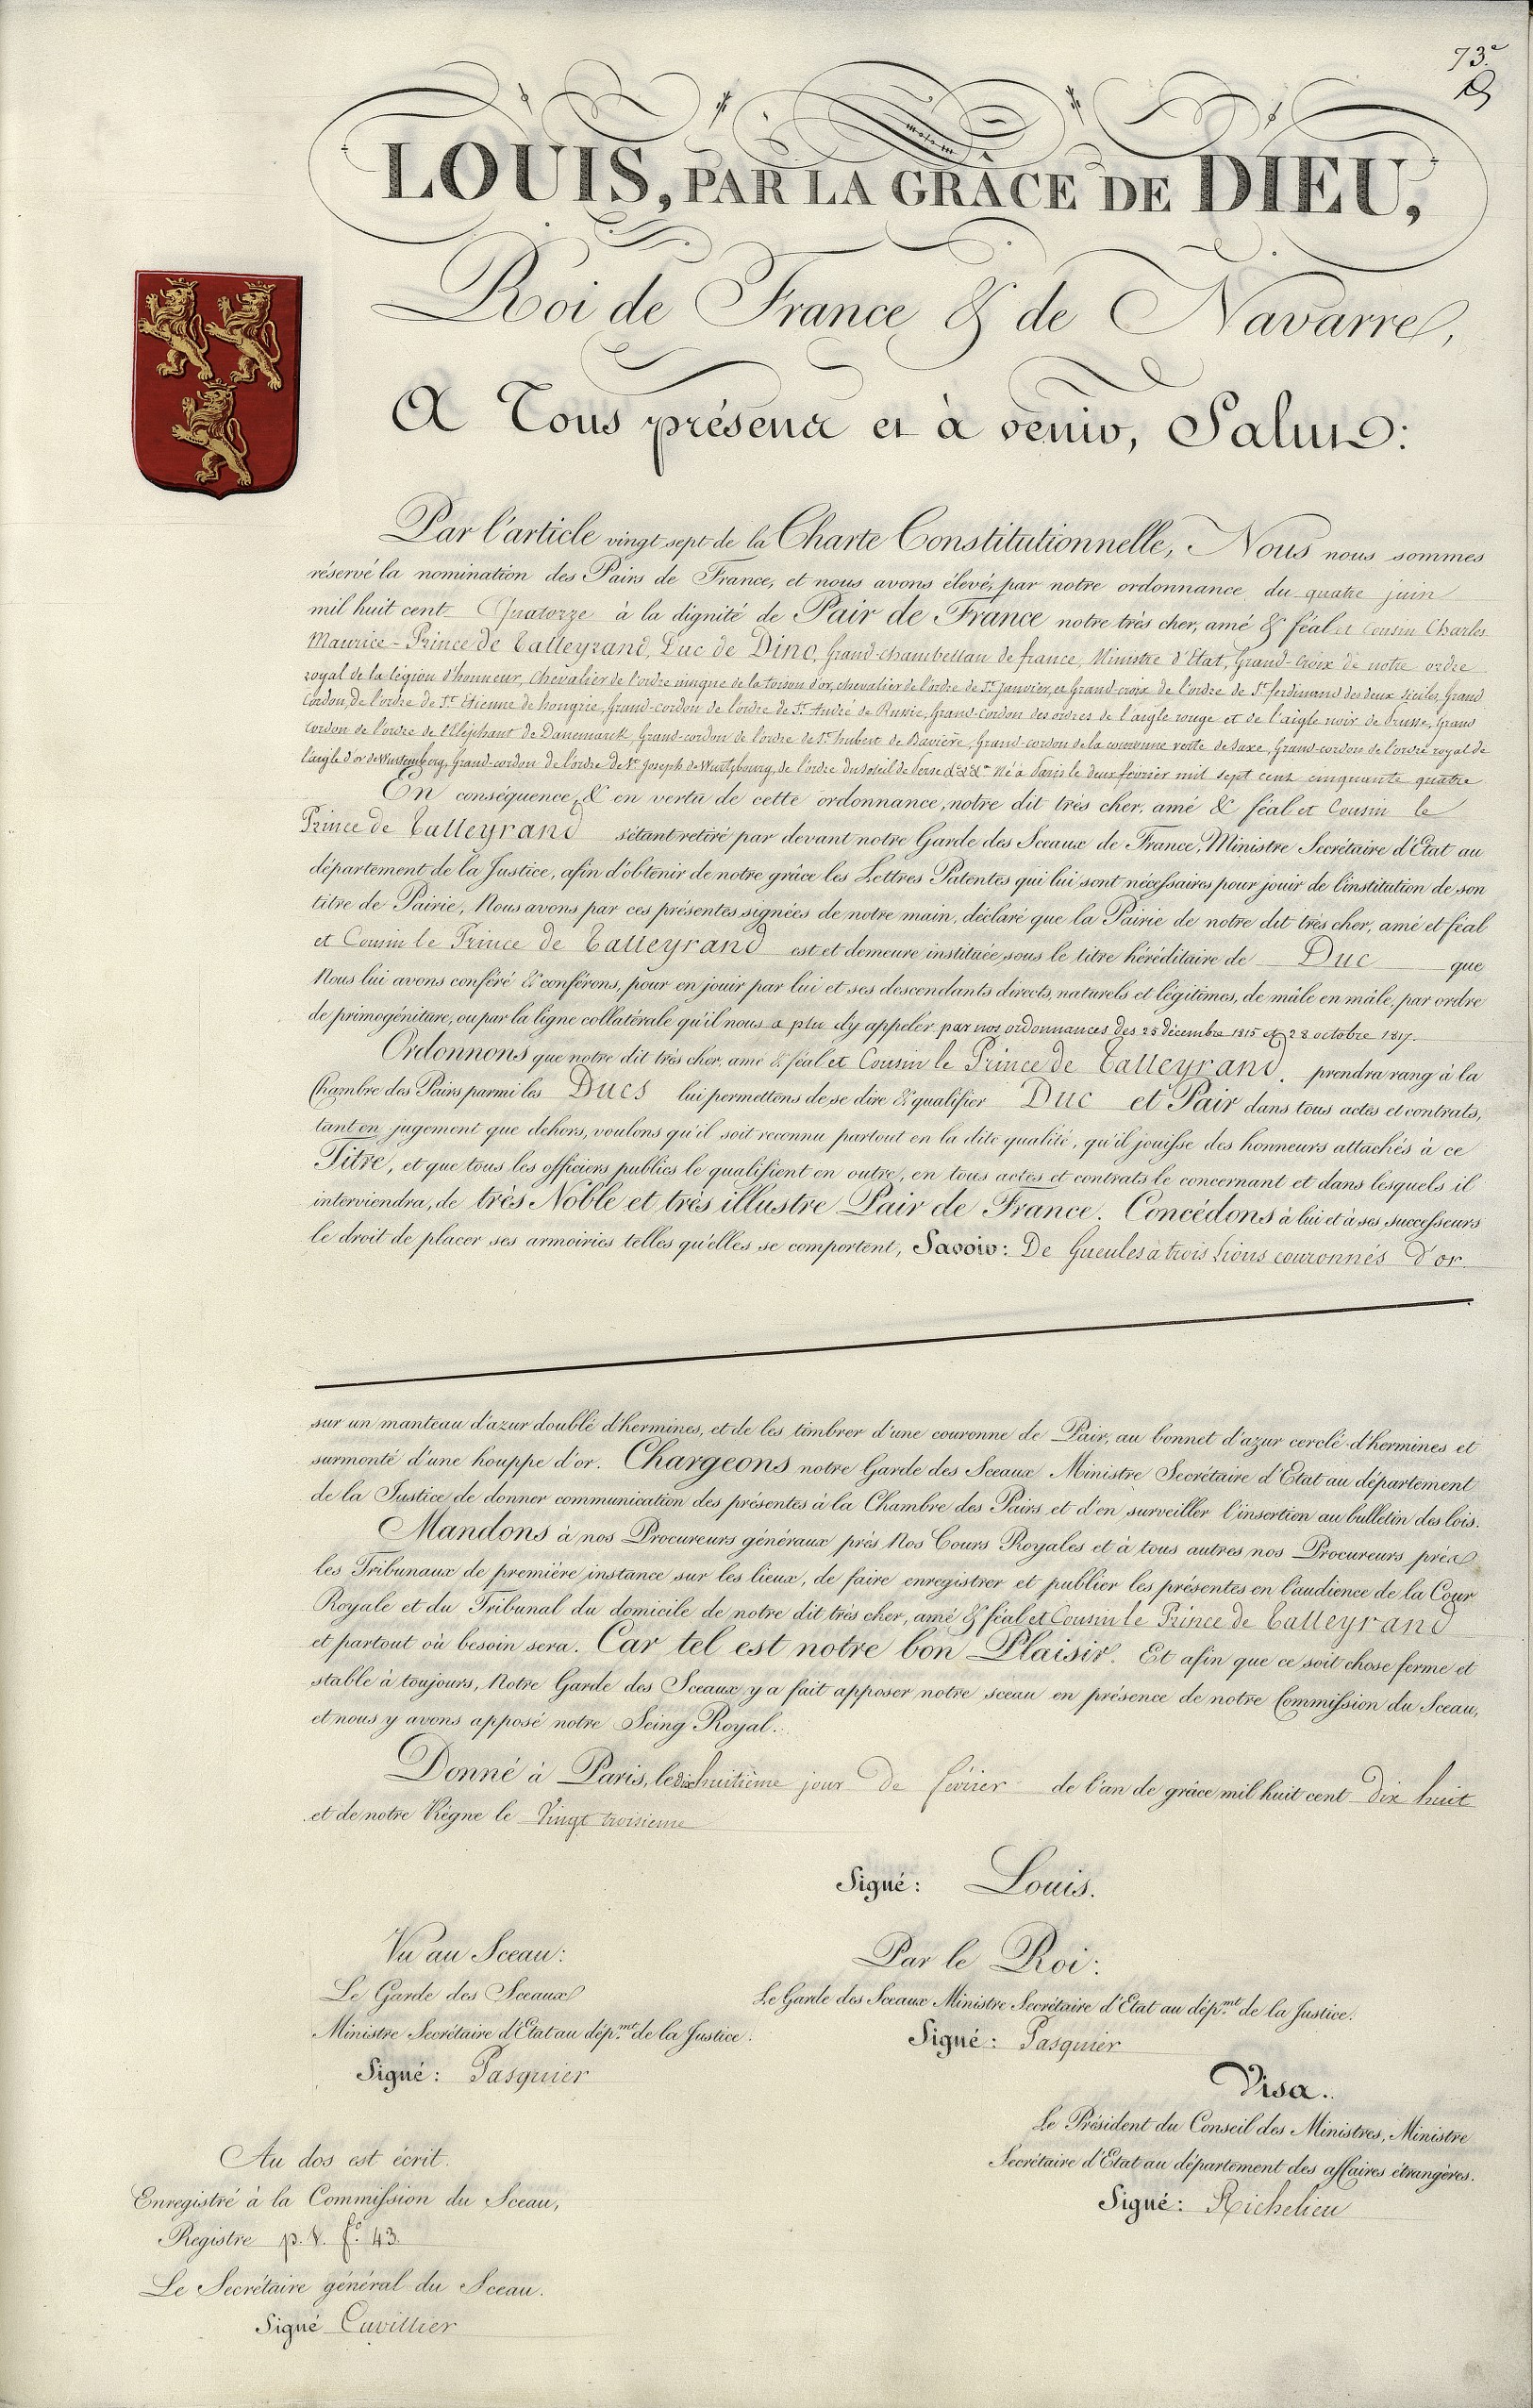 73.e
LOUIS, PAR LA GRÂCE DE DIEU,
Roi de France & de Navarre,
A Tous présens et à venir, Salut:
Par l'article vingt sept de la Charte Constitutionnelle, Nous nous sommes
réservé la nomination des Pairs de France, et nous avons élevé, par notre ordonnance du quatre juin
mil huit cent Quatorze à la dignité de Pair de France notre très cher, amé & féal et Cousin Charles
Maurice-Prince de Talleyrand, Duc de Dino, Grand-chambellan de france, Ministre d'Etat, Grand-Croix de notre ordre
royal de la légion d'honneur, Chevalier de l'ordre insigne de la toison d'or, chevalier de l'ordre de St. janvier, et Grand-croix de l'ordre de St. ferdinand des deux siciles, Grand
Cordon, de l'ordre de St. Etienne de hongrie, Grand-cordon de l'ordre de St. André de Russie, Grand-Cordon des ordres de l'aigle rouge et de l'aigle noir de Prusse, Grand
Cordon de l'ordre de l'Eléphant de Danemarck, Grand-cordon de l'ordre de St. hubert de Bavière, Grand-cordon de la couronne verte de Saxe, Grand-cordon de l'ordre royal de
l'aigle d'or de Wurtemberg, Grand-cordon de l'ordre de St. Joseph de Wurtzbourg, de l'ordre du soleil de Perse &a &a &a né à Paris le deux février mil sept cent cinquante quatre
En conséquence, & en vertu de cette ordonnance, notre dit très cher, amé & féal et Cousin le
Prince de Talleyrand s'étant retiré par devant notre Garde des Sceaux de France, Ministre Secrétaire d'Etat au
département de la Justice, afin d'obtenir de notre grâce les Lettres Patentes qui lui sont nécessaires pour jouir de l'institution de son
titre de Pairie, Nous avons par ces présentes signées de notre main, déclaré que la Pairie de notre dit très cher, amé et féal
et Cousin le Prince de Talleyrand est et demeure instituée sous le titre héréditaire de Duc que
Nous lui avons conféré & conférons, pour en jouir par lui et ses descendants directs, naturels et légitimes, de mâle en mâle, par ordre
de primogéniture, ou par la ligne collatérale qu'il nous a plu d'y appeler par nos ordonnances des 25 décembre 1815 & 28 octobre 1817.
Ordonnons que notre dit très cher, amé & féal et Cousin le Prince de Talleyrand, prendra rang à la
Chambre des Pairs parmi les Ducs lui permettons de se dire & qualifier Duc et Pair dans tous actes et contrats,
tant en jugement que dehors, voulons qu'il soit reconnu partout en la dite qualité, qu'il jouisse des honneurs attachés à ce
Titre, et que tous les officiers publics le qualifient en outre, en tous actes et contrats le concernant et dans lesquels il
interviendra, de très Noble et très illustre Pair de France. Concédons à lui et à ses successeurs
le droit de placer ses armoiries telles qu'elles se comportent, Savoir: De Gueules à trois Lions couronnés d'or.
sur un manteau d'azur doublé d'hermines, et de les timbrer d'une couronne de Pair, au bonnet d'azur cerclé d'hermines et
surmonté d'une houppe d'or. Chargeons notre Garde des Sceaux Ministre Secrétaire d'Etat au département
de la Justice de donner communication des présentes à la Chambre des Pairs et d'en surveiller l'insertion au bulletin des lois.
Mandons à nos Procureurs généraux près Nos Cours Royales et à tous autres nos Procureurs près
les Tribunaux de première instance sur les lieux, de faire enregistrer et publier les présentes en l'audience de la Cour
Royale et du Tribunal du domicile de notre dit très cher, amé & féal et Cousin le Prince de Talleyrand
et partout où besoin sera. Car tel est notre bon Plaisir. Et afin que ce soit chose ferme et
stable à toujours, Notre Garde des Sceaux y a fait apposer notre sceau en présence de notre Commission du Sceau,
et nous y avons apposé notre Seing Royal.
Donné à Paris, le dix huitième jour de février de l'an de grâce mil huit cent dix huit
et de notre Règne le Vingt troisieme
Signé: Louis.
Vu au Sceau:
Le Garde des Sceaux
Ministre Secrétaire d'Etat au dép.mt de la Justice.
Signé: Pasquier
Par le Roi:
Le Garde des Sceaux Ministre Secrétaire d'Etat au dép.mt de la Justice.
Signé: Pasquier
Visa.
Le Président du Conseil des Ministres, Ministre
Secrétaire d'Etat au département des affaires étrangères.
Signé: Richelieu
Au dos est écrit.
Enregistré à la Commission du Sceau,
Registre p. V. f.o 43
Le Secrétaire général du Sceau.
Signé Cuvillier